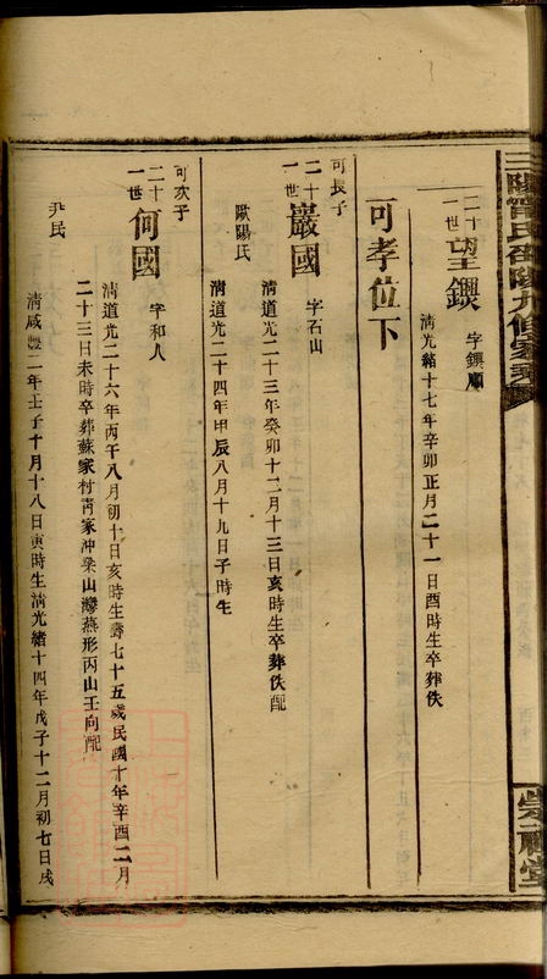 三陽甯氏邵陽九修家乘
崇禮堂
二十一世望鍥 字鑽願
清光緒十七年辛卯正月二十一日酉時生卒葬佚
可孝位下
可長子
二十一世巖國 字石山
清道光二十三年癸卯十二月十三日亥時生卒葬佚配
歐陽氏
清道光二十四年甲辰八月十九日子時生
可次子
二十一世何國 字和人
清道光二十六年丙午八月初十日亥時生壽七十五歲民國十年辛酉二月
二十三日未時卒葬蘇家村靑家沖梁山灣燕形丙山壬向配
尹氏
清咸豐二年壬子十月十八日寅時生清光緒十四年戊子十二月初七日戌